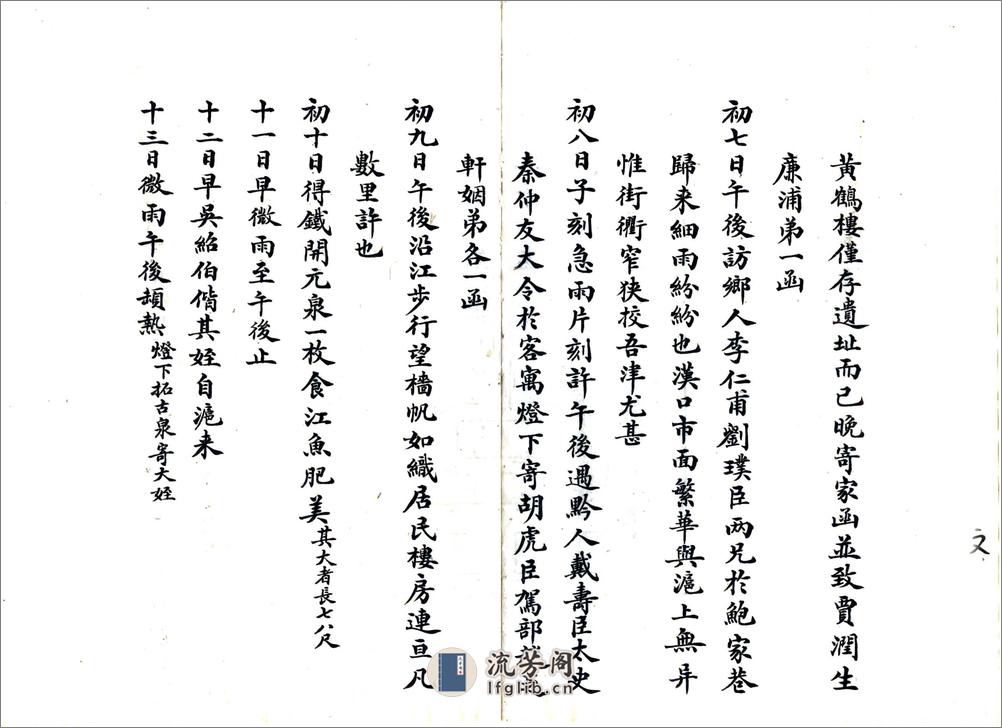 黃鶴樓僅存遺址而已晚寄家函並致賈潤生
廉浦弟一函
初七日午後訪鄉人李仁甫劉璞臣兩兄於鮑家巷
歸来細雨紛紛也漢口市面繁華與滬上無异
惟街衢窄狹挍吾津尤甚
初八日子刻急雨片刻許午後遇黔人戴壽臣太史
秦仲友大令於客寓燈下寄胡虎臣駕部
軒姻弟各一函
初九日午後沿江步行望檣帆如織居民樓房連亘凡
數里許也
初十日得鐵開元泉一枚食江魚肥美其大者長七八尺
十一日早微雨至午後止
十二日早吳紹伯偕其姪自滬来
十三日微雨午後頗熱燈下拓古泉寄大姪
文
流芳阁
lfglib.cn